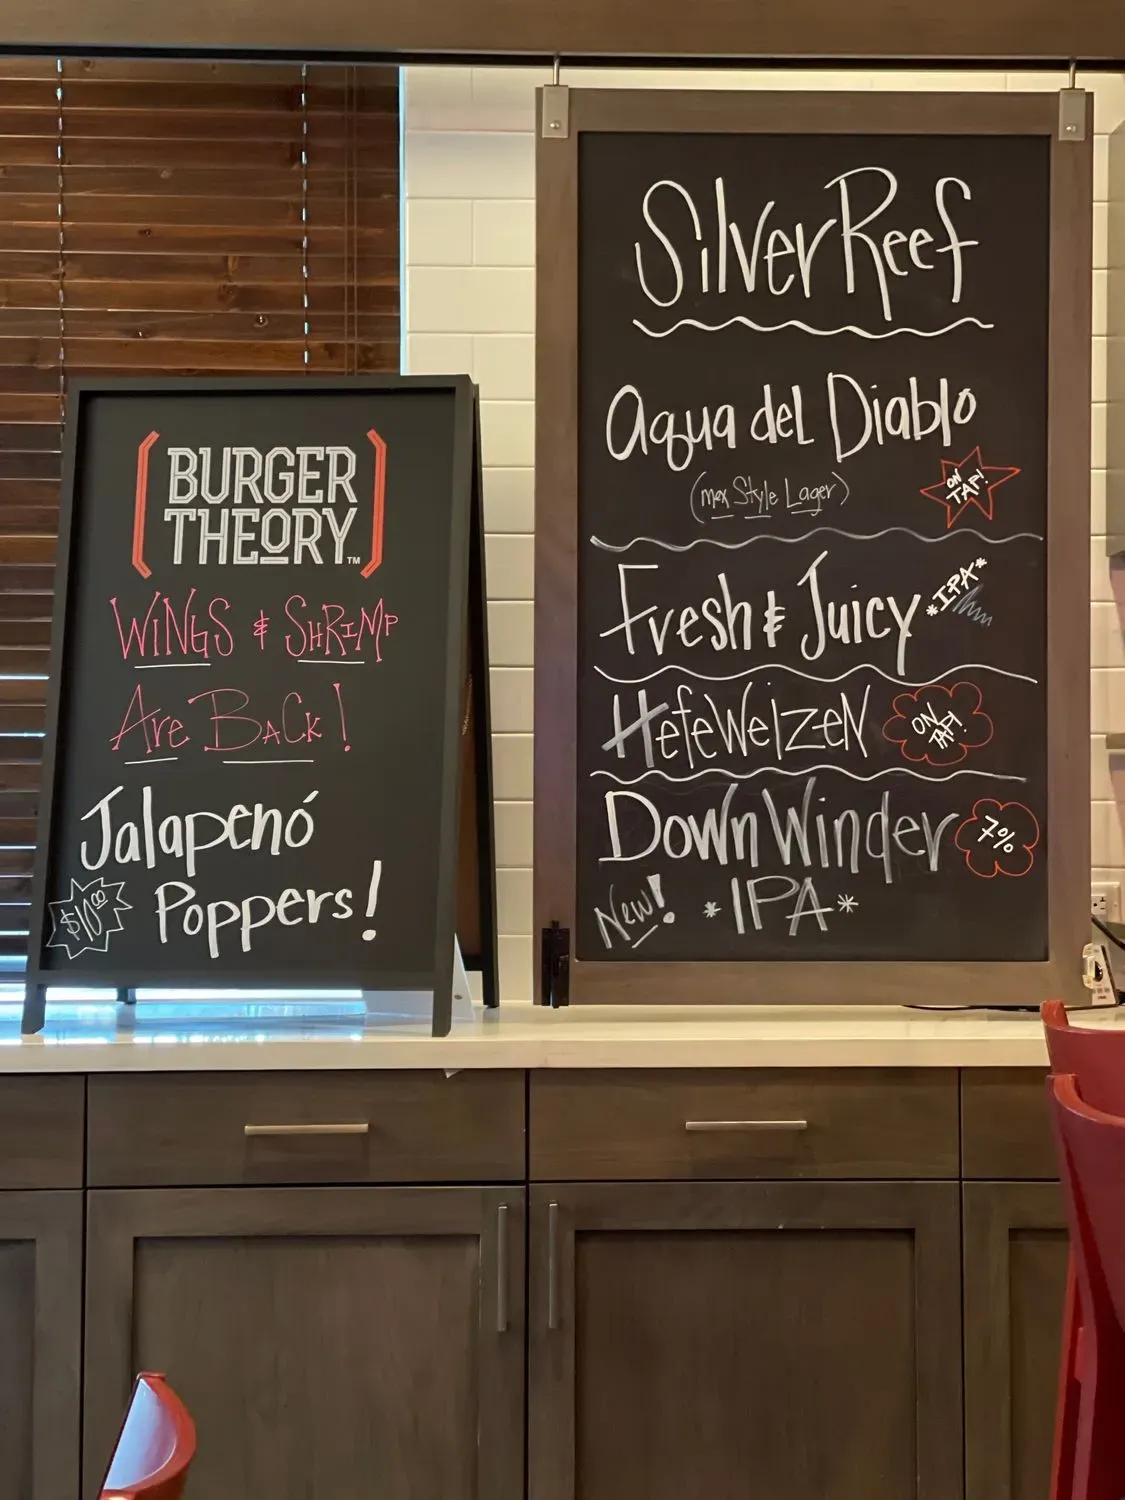 BURGER
THEORY™
WiNGS & SHRIMP
Are BACk!
Jalapenó
Poppers!
$10.00
Silver Reef
Aqua del Diablo
(mex Style Lager)
ON
TAP!
Fresh & Juicy
*IPA*
HefeWeizeN
ON
TAP!
DowN Winder
7%
New!
*IPA*